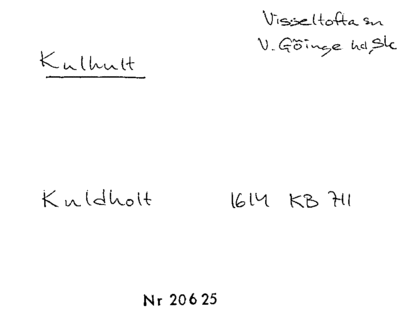 Visseltofta sn
V. Göinge hd, Sk
Kulhult
Kuldholt 1614 KB 711
Nr 20625